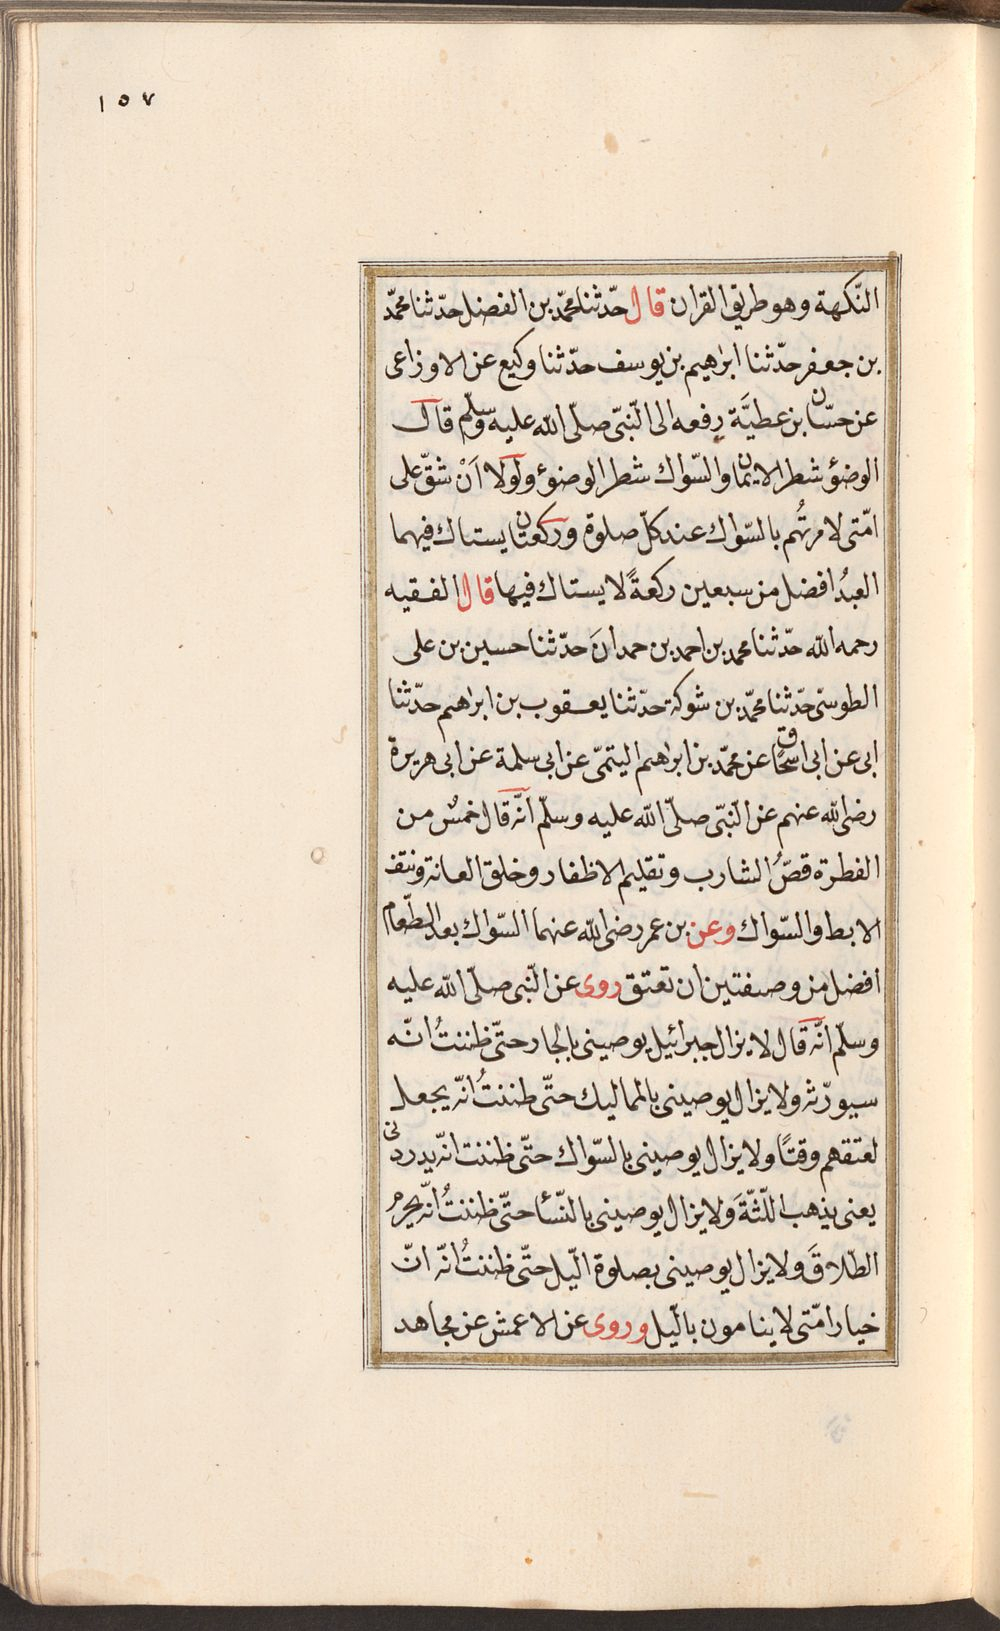 ١٥٧
النّكهة وهو طريق القران قال حدّثنا محمّد بن الفضل حدّثنا محمّد
بن جعفر حدّثنا ابرٰهيم بن يوسف حدّثنا وكيع عن الاوزاعى
عن حسّان بن عطيَّة رفعه الى النّبىّ صلّى اللّه عليه وسلّم قال
الوضؤ شطر الايمان والسّواك شطر الوضوء ولولا اَنْ شقّ على
امّتى لامرتُهم بالسّواك عند كلّ صلوة وركعتان يستاك فيهما
العبدُ افضل من سبعين ركعةً لا يستاك فيها قال الفقيه
رحمه اللّه حدّثنا محمد بن احمد بن حمدانَ حدّثنا حسين بن على
الطوسىّ حدّثنا محمّد بن شوكة حدّثنا يعقوب بن ابرٰهيم حدّثنا
ابى عن ابى اسحٰاق عن محمّد بن ابرٰهيم اليتمىّ عن ابى سلمة عن ابى هريرة
رضى اللّه عنهم عن النّبىّ صلّى اللّه عليه وسلّم انّه قال خمسٌ من
الفطرة قصّ الشارب وتقليم الاظفار وخلق العانة ونتف
الابط والسّواك وعن بن عمر رضى اللّه عنهما السّواك بعد الطّعام
افضل من وصفتين ان تعتق روى عن النّبى صلّى اللّه عليه
وسلّم انّه قال لا يزال جبرائيل يوصينى بالجار حتّى ظننتُ انّه
سيورّثه ولا يزال يوصينى بالمماليك حتّى ظننتُ انّه يجعل
لعتقهم وقتًا ولا يزال يوصينى بالسّواك حتّى ظننت انّه يدردنى
يعنى يذهب اللّثّةَ ولا يزال يوصينى بالنّسأ حتّى ظننتُ انّه يحرم
الطّلاقَ ولا يزال يوصينى بصلوة الّيل حتّى ظننتُ انّه انّ
خيار امّتى لا ينامون بالّيل وروى عن الاعمش عن مجاهد